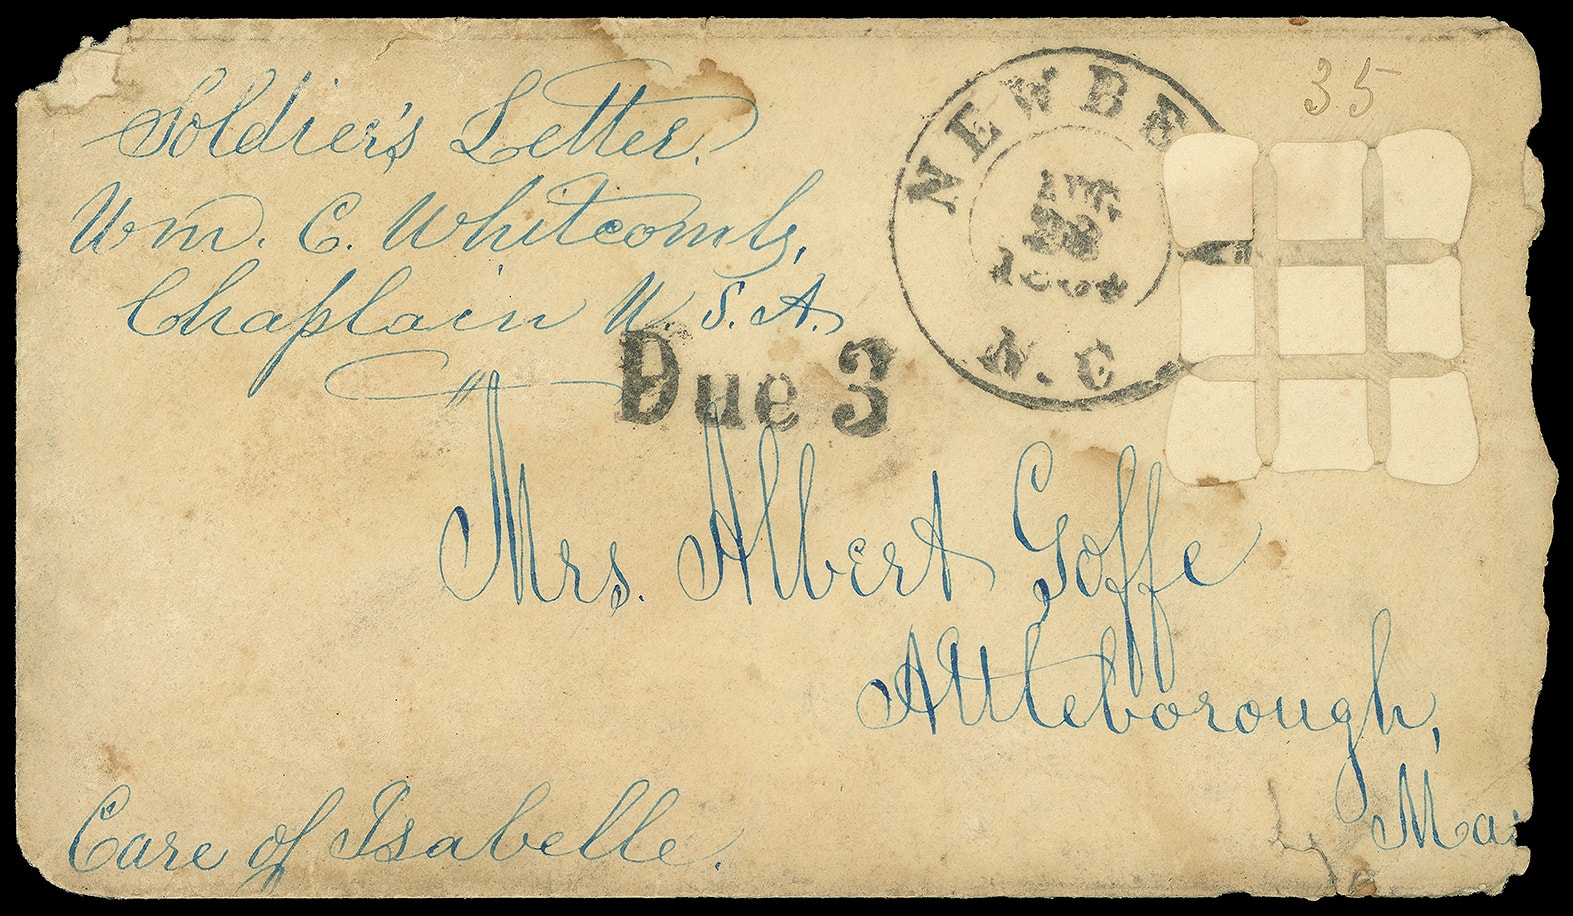 Soldier's Letter.
Wm. C. Whitcomb,
Chaplain U. S. A.
NEWBE
AUG.
1864
N. C
35
Due 3
Mrs. Albert Goffe
Attleborough,
Mas
Care of Isabelle.